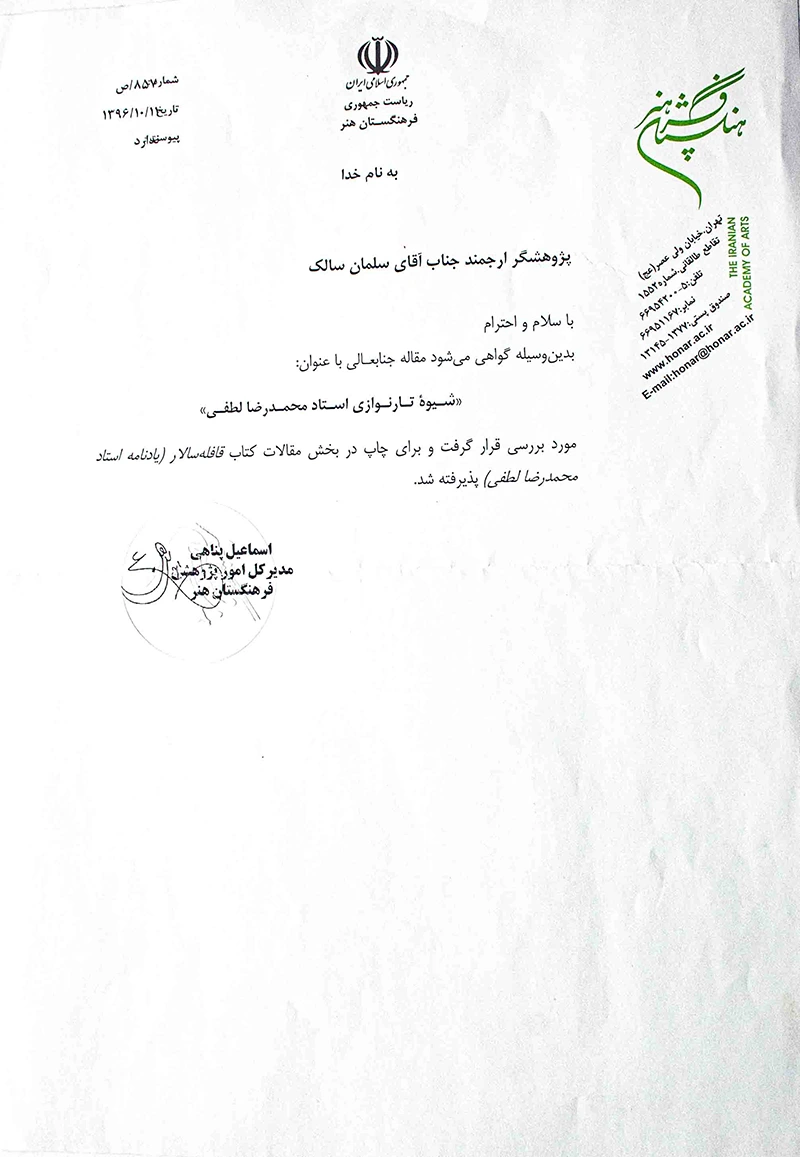 جمهوری اسلامی ایران
ریاست جمهوری
فرهنگستان هنر
شماره ص/
تاریخ ۱۳۹۶/۱۰/
پیوست ندارد
فرهنگستان هنر
THE IRANIAN
ACADEMY OF ARTS
تهران،خیابان ولی عصر(عج)
تقاطع طالقانی،شماره۱۵۵۲
تلفن:۵-۶۶۹۵۴۲۰۰
نمابر:۶۶۹۵۱۱۶۷
صندوق پستی:۱۳۷۷-۱۳۱۴۵
www.honar.ac.ir
E-mail:honar@honar.ac.ir
به نام خدا
پژوهشگر ارجمند جناب آقای سلمان سالک
با سلام و احترام
بدین‌وسیله گواهی می‌شود مقاله جنابعالی با عنوان:
«شیوهٔ تارنوازی استاد محمدرضا لطفی»
مورد بررسی قرار گرفت و برای چاپ در بخش مقالات کتاب قافله‌سالار (یادنامه استاد
محمدرضا لطفی) پذیرفته شد.
اسماعیل پناهی
مدیر کل امور پژوهشی
فرهنگستان هنر